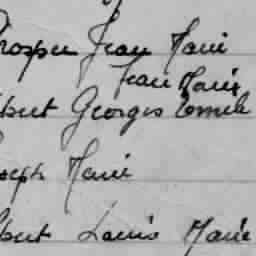 Prosper Jean Marie
Jean Marie
Albert Georges Emile
Joseph Marie
Albert Louis Marie